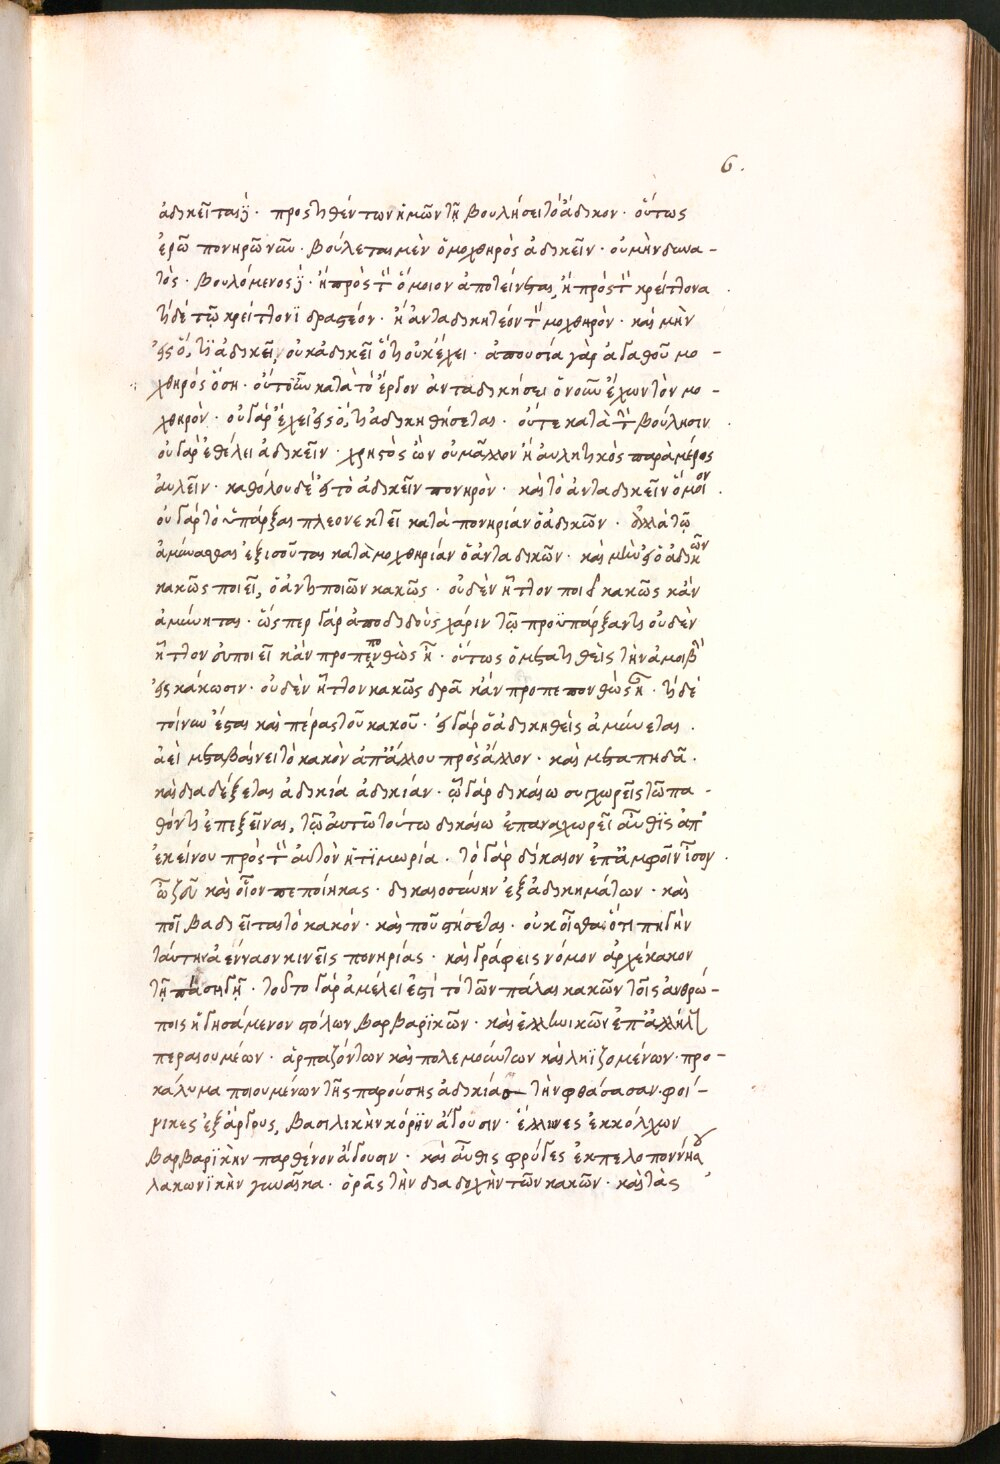 6.
ἀδικεῖται δέ· προστιθέντων ἡμῶν τῇ βουλήσει τὸ ἄδικον· οὕτως
ἐρῶ πονηρῶ νῦν· βούλεται μὲν ὁ μοχθηρὸς ἀδικεῖν· οὐ μὴν δυνα-
τός· βουλόμενος δὲ· ἢ πρὸς τὸν ὅμοιον ἀποτείνεται, ἢ πρὸς τὸν κρείττονα
τί δὲ τῷ κρείττονϊ δραστέον· ἢ ἀνταδικητέον τὸν μοχθηρὸν· καὶ μὴν
ἐστὶν ὅ,τϊ ἀδικεῖ, οὐκ ἀδικεῖ ὅτι οὐκ ἔχει· ἀπουσία γὰρ ἀγαθοῦ μο-
χθηρὸς
κατὰ τὸ ἔργον ἀνταδικήσει ὁ νοῦν ἔχων τὸν μο-
χθηρὸν· οὐ γὰρ ἔχει ἐστὶν ὅ,τι ἀδικηθήσεται· οὔτε κατὰ τὴν βούλησιν
οὐ γὰρ ἐθέλει ἀδικεῖν· χρηστὸς ὢν οὐ μᾶλλον ἢ αὐλητικὸς παρὰ μέρος
αὐλεῖν· καθόλου δὲ εἰ τὸ ἀδικεῖν πονηρὸν· καὶ τὸ ἀνταδικεῖν ὅμοιον
οὐ γὰρ τὸ ὑπάρξαι πλεονεκτεῖ κατὰ πονηρίαν ὁ ἀδικῶν· ἀλλὰ τῷ
ἀμύνασθαι ἐξισοῦται κατὰ μοχθηρίαν ὁ ἀνταδικῶν· καὶ μὴν εἰ ὁ ἀδικῶν
κακῶς ποιεῖ, ὁ ἀντιποιῶν κακῶς· οὐδὲν ἧττον ποιεῖ κακῶς κἂν
ἀμύνηται· ὥσπερ γὰρ ἀποδιδοὺς χάριν τῷ προϋπάρξαντι οὐδὲν
ἧττον εὐποιεῖ κἂν προπεπονθὼς ἦ· οὕτως ὁ μετατιθεὶς τὴν ἀμοιβὴν
εἰς κάκωσιν· οὐδὲν ἧττον κακῶς δρᾶ κἂν προπεπονθὼς ἦ· τί δὲ
τοίνυν ἔσται καὶ πέρας τοῦ κακοῦ· εἰ γὰρ ὁ ἀδικηθεὶς ἀμύνεται.
ἀεὶ μεταβαίνει τὸ κακὸν ἀπ' ἄλλου πρὸς ἄλλον· καὶ μεταπηδᾶ.
καὶ διαδέξεται ἀδικία ἀδικίαν· ᾧ γὰρ δικαίω συγχωρεῖς τῶ πα-
θόντι ἐπεξεῖναι, τῷ αὐτῶ τούτω δικαίω ἐπαναχωρεῖ αὖθϊς ἀπ'
ἐκείνου πρὸς τὸν αὐτὸν ἡ τϊμωρία. τὸ γὰρ δίκαιον ἐπ' ἀμφοῖν ἴσον
ὦ ζεῦ καὶ οἷον πεποίηκας· δικαιοσύνην ἐξ ἀδικημάτων· καὶ
ποῖ βαδιεῖται τὸ κακόν· καὶ ποῦ στήσεται· οὐκ οἶσθα ὅτι πηγὴν
ταύτην ἀένναον κινεῖς πονηρίας· καὶ γράφεις νόμον ἀρχέκακον
τῇ πάσῃ γῇ· τοῦτο γὰρ ἀμέλει ἐστὶ τὸ τῶν πάλαι κακῶν τοῖς ἀνθρώ-
ποις ἡγησάμενον στόλων βαρβαρϊκῶν· καὶ ἑλληνικῶν ἐπ' ἀλλήλους
περαιουμένων· ἁρπαζόντων καὶ πολεμούντων καὶ ληϊζομένων· προ-
κάλυμα ποιουμένων τῆς παρούσης ἀδικίας τὴν φθάσασαν· φοί-
νικες ἐξ ἄργους, βασιλικὴν κόρην ἄγουσιν· ἕλληνες ἐκ κόλχων
βαρβαρϊκὴν παρθένον ἄγουσιν· καὶ αὖθις φρύγες ἐκ πελοποννήσου
λακωνϊκὴν γυναῖκα· ὁρᾶς τὴν διαδοχὴν τῶν κακῶν· καὶ τὰς